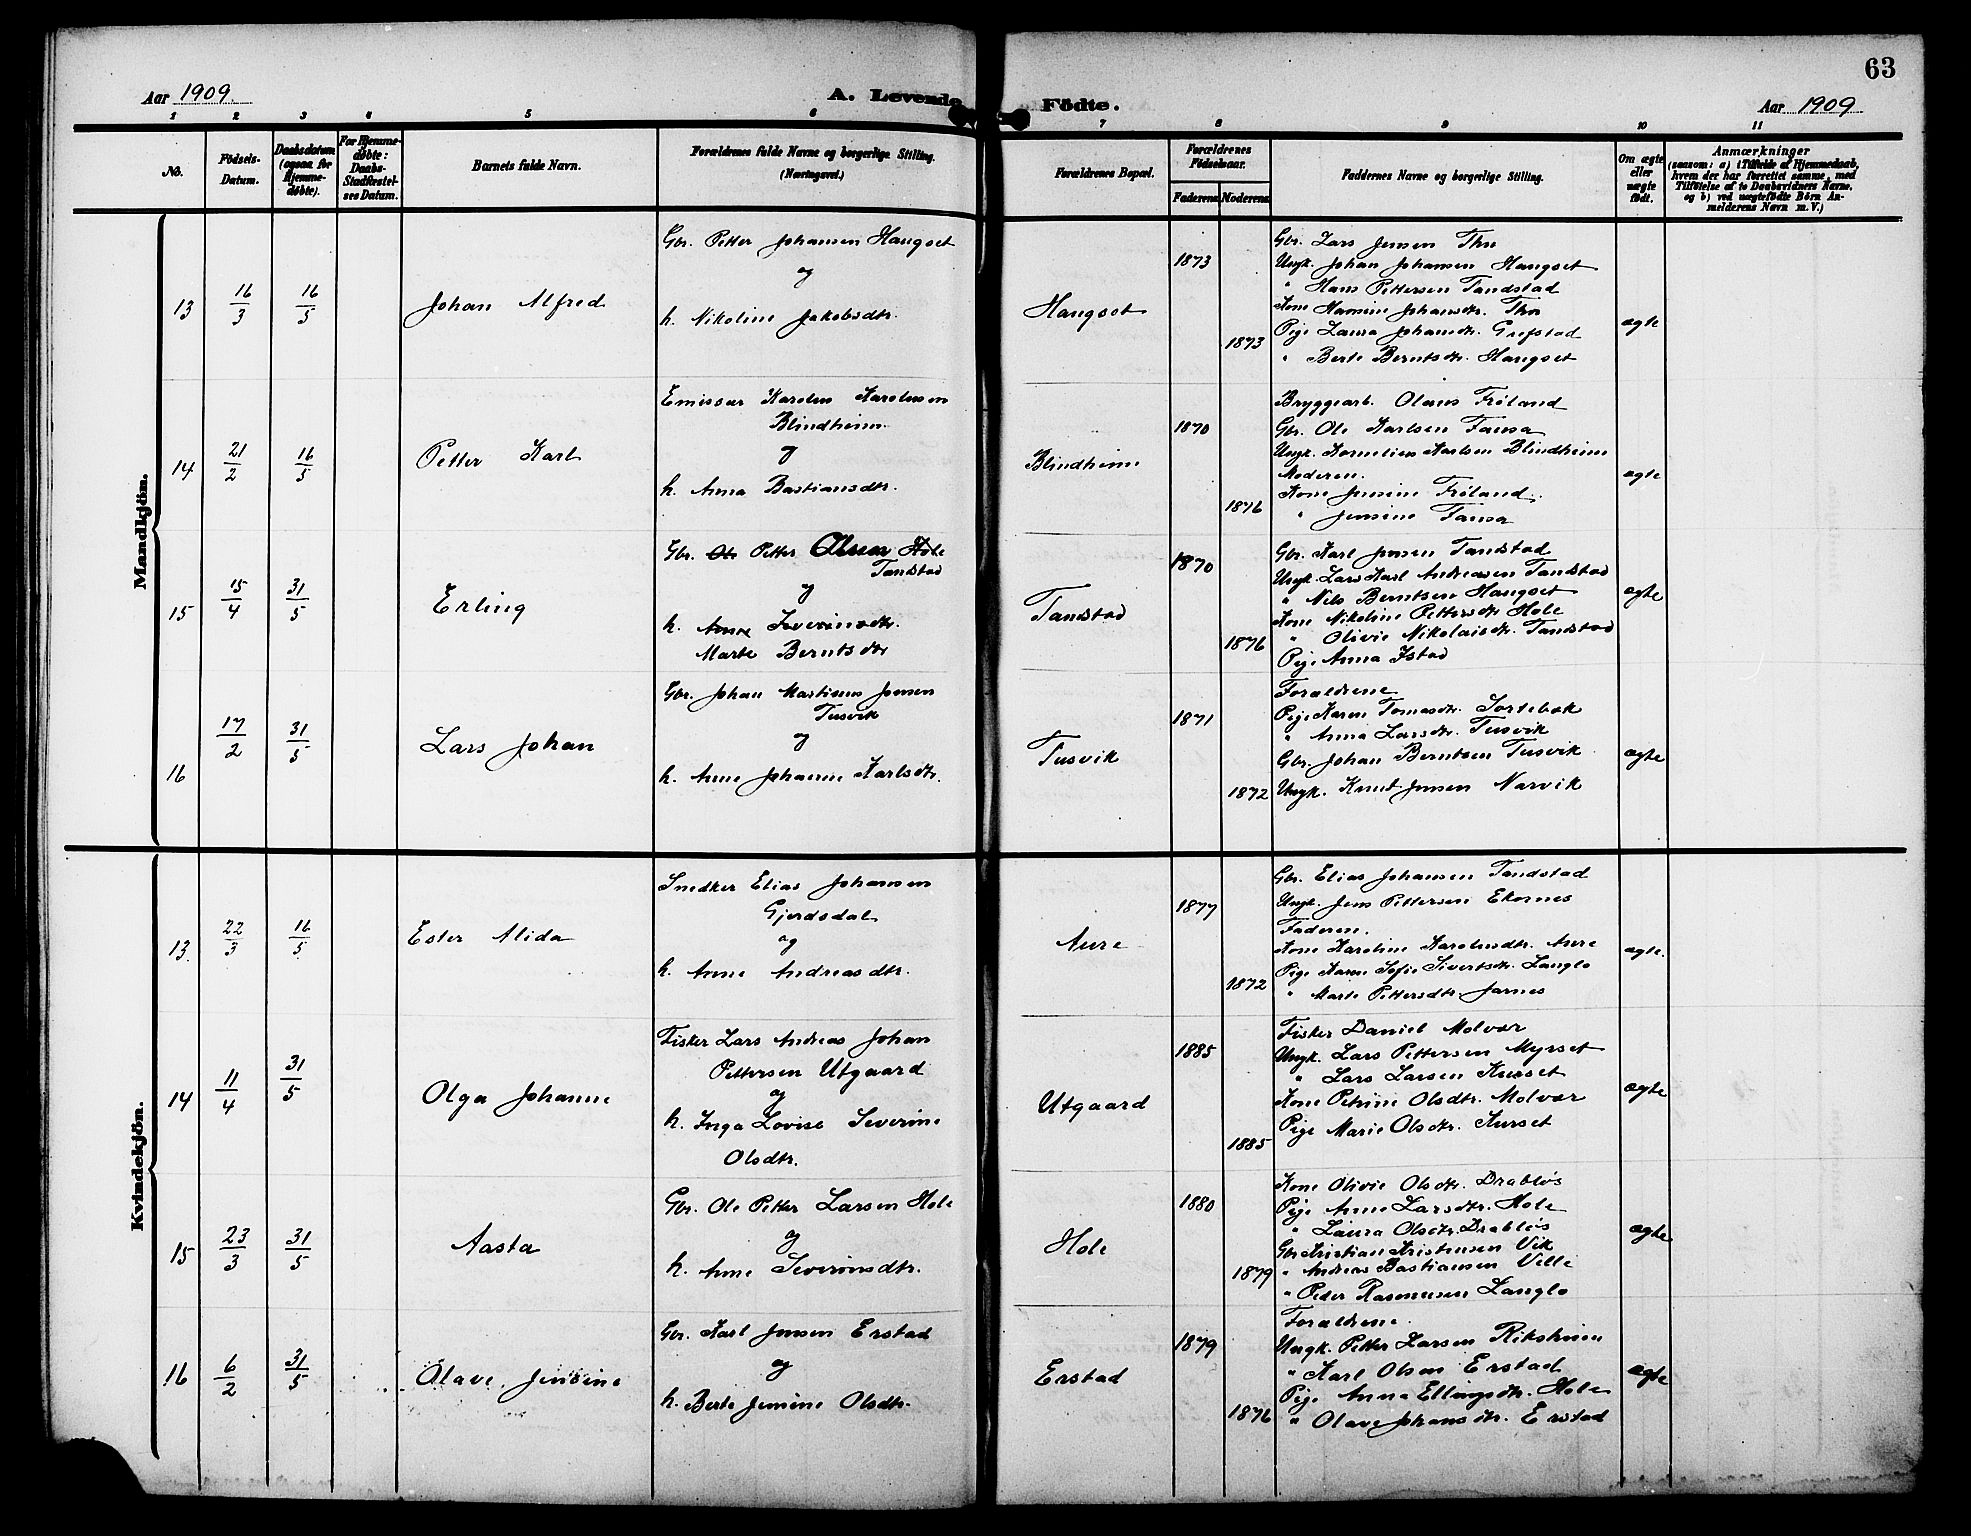 63
Aar 1909.
A. Levende Födte.
Aar 1909
1 2 3 4 5 6 7 8 9 10 11
No.
Födsels-Datum.
Daabsdatum (ogsaa for Hjemme-döbte).
For Hjemme-döbte: Daabs-Stadfæstel-ses Datum.
Barnets fulde Navn.
Forældrenes fulde Navne og borgerlige Stilling. (Næringsvei.)
Forældrenes Bopæl.
Forældrenes Födselsaar.
Faderens Moderens
Faddernes Navne og borgerlige Stilling.
Om ægte eller uægte födt.
Anmærkninger
(saasom: a) i Tilfælde af Hjemmedaab, hvem der har forrettet samme, med Tilföielse af to Daabsvidners Navne, og b) ved uægtefödte Börn An-melderens Navn m. V.)
Mandkjön.
13 16/3 16/5 Johan Alfred
Gbr. Petter Johansen Haugset
og
h. Nikoline Jakobsdtr.
Haugset
1873
1873
Gbr. Lars Jensen Thu
Ungk. Johan Johansen Haugset
" Hans Pettersen Tandstad
Kone Hamine Johansdtr. Thu
Pige Laura Johansdtr. Grefstad
" Berte Berntsdtr. Haugset
ægte
14 21/2 16/5 Petter Karl
Emissær Karolus Karolusen
Blindheim
og
h. Anna Bastiansdtr.
Blindheim
1870
1876
Bryggearb. Olaus Fröland
Gbr. Ole Karlsen Fausa
Ungk. Kornelius Karlsen Blindheim
Moderen.
Kone Jensine Fröland.
" Jensine Fausa
ægte
15 15/4 31/5 Erling
Gbr. Ole Petter Olsen Hole
Tandstad
og
h. Anne Severinsdtr.
Marte Berntsdtr
Tandstad
1870
1876
Gbr. Karl Jensen Tandstad
Ungk. Lars Karl Andreasen Tandstad
" Nils Berntsen Haugset
Kone Nikoline Pettersdtr. Hole
" Olivie Nikolaisdtr. Tandstad
Pige Anna Istad
ægte
16 17/2 31/5 Lars Johan
Gbr. Johan Martinus Jensen
Tusvik
og
h. Anne Johanne Karlsdtr.
Tusvik
1871
1872
Forældrene
Pige Karen Tomasdtr. Sortebek
" Anna Larsdtr. Tusvik
Gbr. Johan Berntsen Tusvik
Ungk. Knut Jensen Narvik
ægte
Kvindekjön.
13. 22/3 16/5 Ester Alida
Snedker Elias Johansen
Gjerdsdal
og
h. Anne Andreasdtr.
Aure
1877
1872
Gbr. Elias Johansen Tandstad
Ungk. Jens Pettersen Ekornes
Faderen.
Kone Karoline Karolusdtr. Aure
Pige Karen Sofie Sivertsdtr. Langlo
" Marte Pettersdtr. Jarnes
ægte.
14 11/4 31/5 Olga Johanne
Fisker Lars Andreas Johan
Pettersen Utgaard
og
h. Inga Lovise Severine
Olsdtr.
Utgaard
1885
1885
Fisker Daniel Molvær
Ungk. Lars Pettersen Myrset
" Lars Larsen Kurset
Kone Petrine Olsdtr. Molvær
Pige Marie Olsdtr. Kurset
ægte
15 23/3 31/5 Aasta
Gbr. Ole Petter Larsen Hole
og
h. Anne Severinsdtr.
Hole
1880
1879
Kone Olivie Olsdtr. Drablös
Pige Anne Larsdtr. Hole
" Laura Olsdtr. Drablös
Gbr. Kristian Kristensen Vik
" Andreas Bastiansen Velle
" Peder Rasmussen Langlo
ægte
16 6/2 31/5 Olave Jensine
Gbr. Karl Jensen Erstad
og
h. Berte Jensine Olsdtr.
Erstad
1879
1876
Forældrene.
Ungk. Petter Larsen Riksheim
" Karl Olsen Erstad
Pige Anna Ellingsdtr. Hole
" Olave Johansdtr. Erstad
ægte